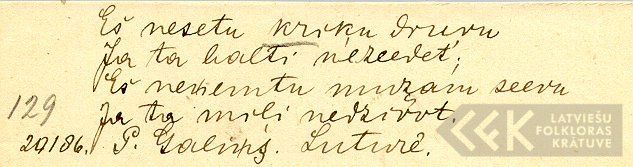 Eš nesetu kriku druvu
Ja ta balti nezeedet;
Eš nenemtu muzam seevu
Ja ta mili nedzivot.
129
29186. P. Galiņš. Luturē.
LATVIEŠU
FOLKLORAS
KRĀTUVE